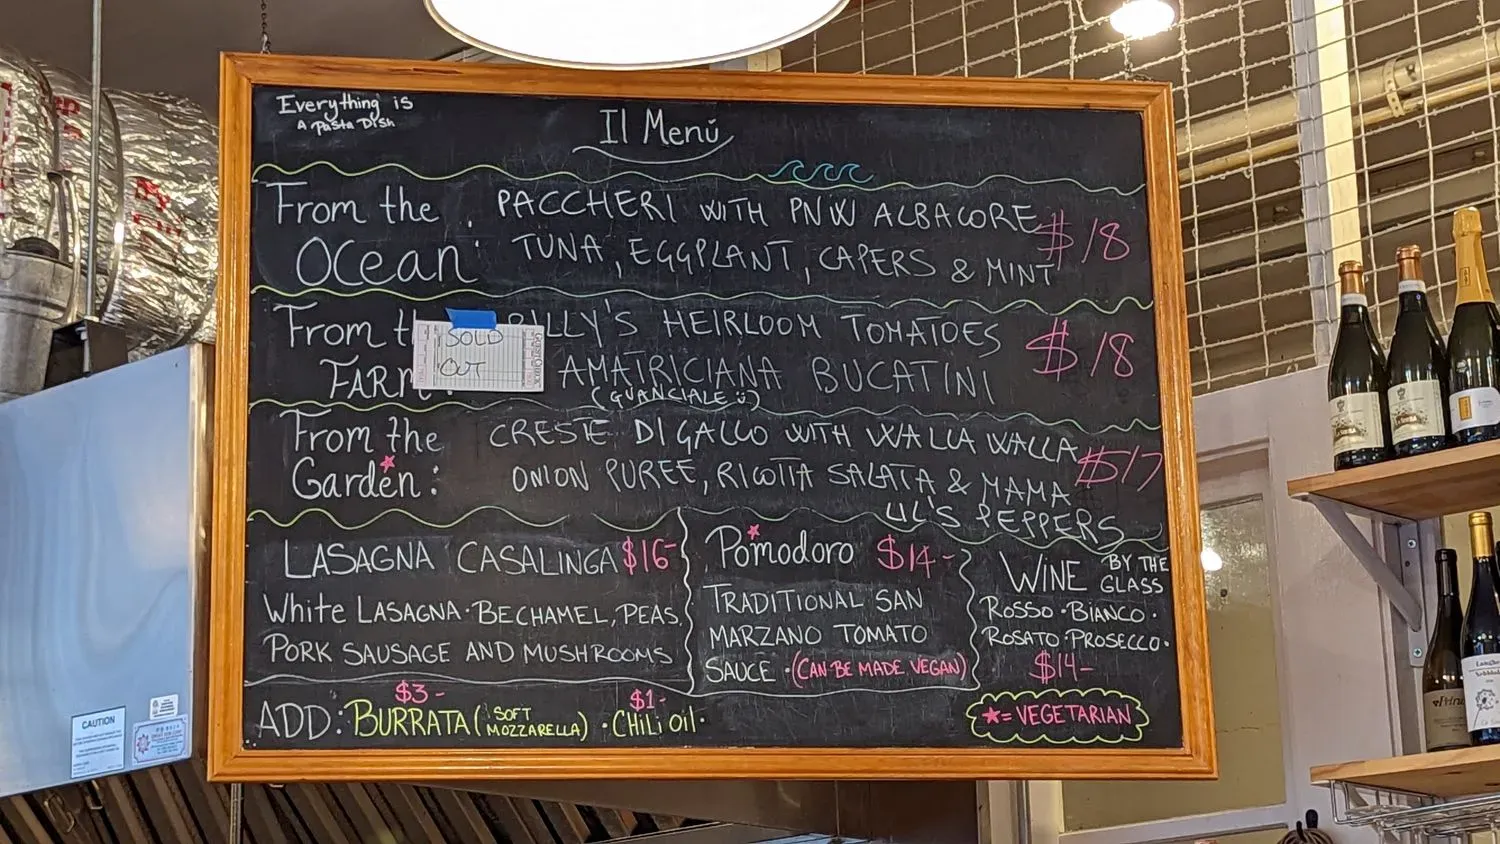 Everything is
A Pasta Dish
Il Menú
From the
OCean:
PACCHERI WITH PNW ALBACORE
TUNA, EGGPLANT, CAPERS & MINT
$18
From th
FARM:
SOLD
OUT
BILLY'S HEIRLOOM TOMATOES
AMATRICIANA BUCATINI
(GUANCIALE ü)
$18
From the
Garden:
CRESTE DI GALLO WITH WALLA WALLA
ONION PUREE, RICOTTA SALATA & MAMA
LIL'S PEPPERS
$17
LASAGNA CASALINGA $16-
White LASAGNA · BECHAMEL, PEAS,
PORK SAUSAGE AND MUSHROOMS
Pomodoro $14-
TRADITIONAL SAN
MARZANO TOMATO
SAUCE · (CAN BE MADE VEGAN)
WINE BY THE
GLASS
ROSSO · BIANCO ·
ROSATO · PROSECCO ·
$14-
$3-
$1-
ADD: BURRATA (SOFT
MOZZARELLA) · CHiLi oil ·
★ = VEGETARIAN
CAUTION